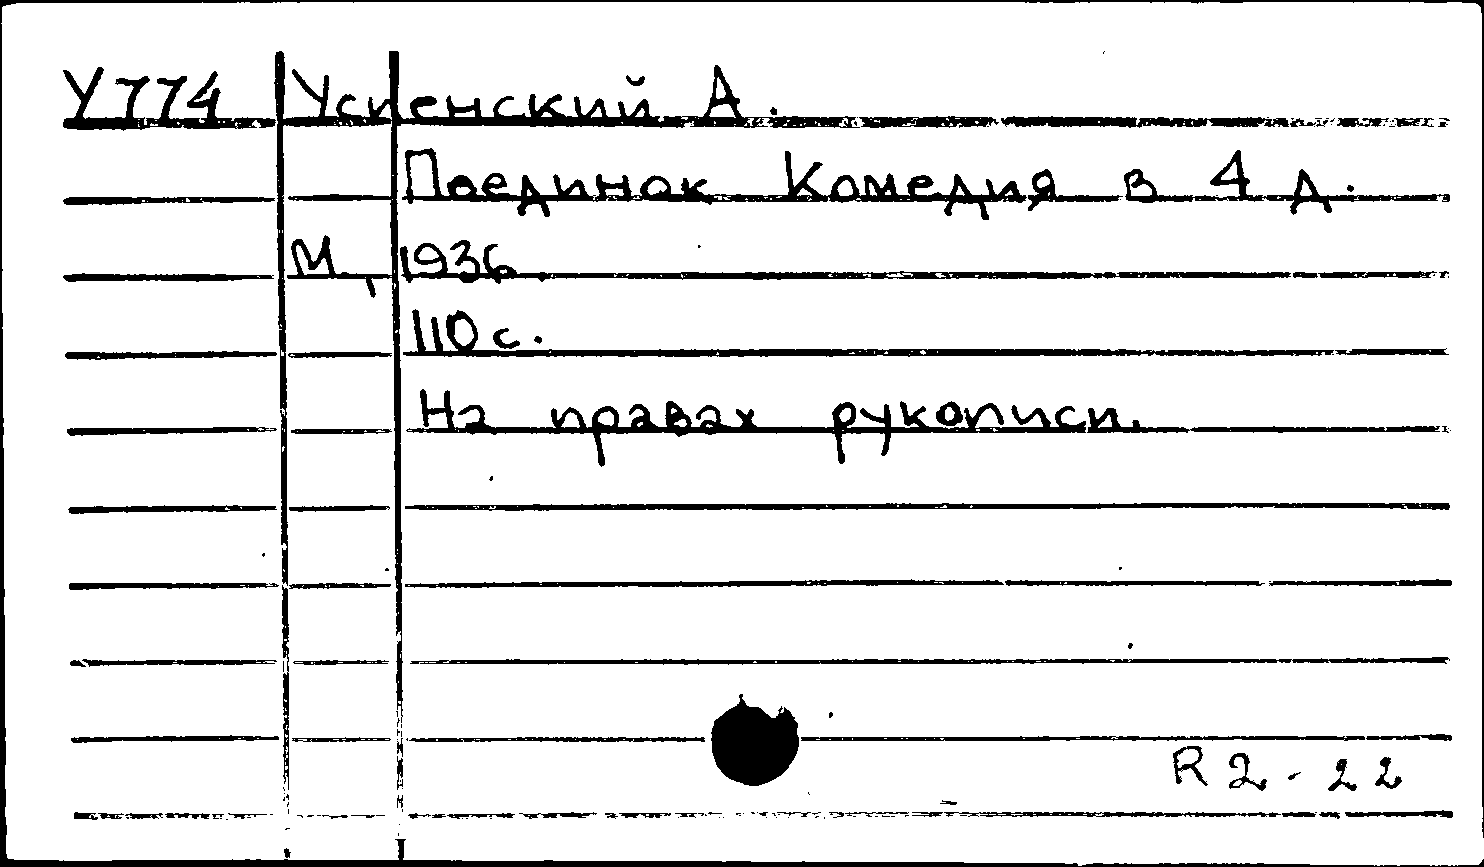 У774 Успенский А.
Поединок Комедия в 4 д.
М., 1936.
110 с.
На правах рукописи.
R 2 - 22